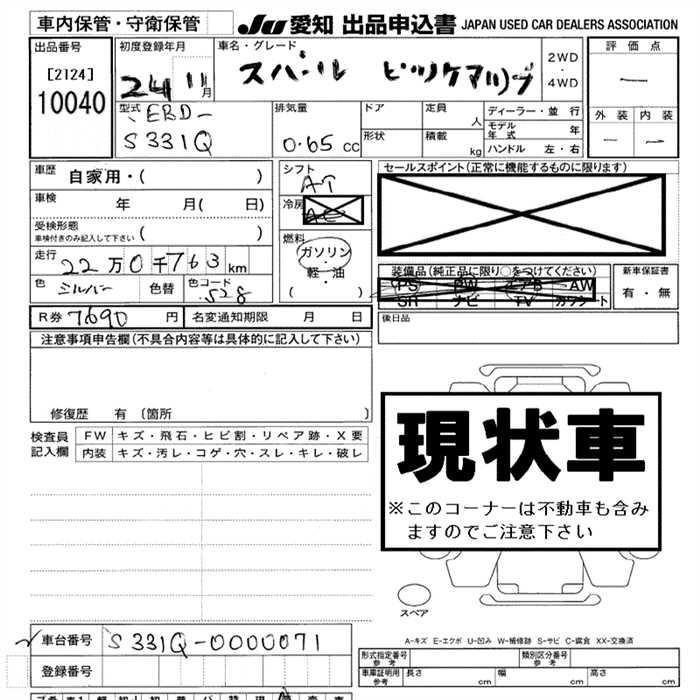 車内保管・守衛保管
JU 愛知 出品申込書 JAPAN USED CAR DEALERS ASSOCIATION
出品番号
[2124]
10040
初度登録年月
24 11月
車名・グレード
スバール ピックアップ
2WD
・
4WD
評価点
—
外装 内装
— —
型式
EBD-
S331Q
排気量
0.65 CC
ドア
形状
定員 人
積載 kg
ディーラー・並行
モデル年式 年
ハンドル 左・右
車歴 自家用・( )
車検 年 月( 日)
受検形態
車検付きのみ記入して下さい ( )
走行 22万0千763km
色 シルバー 色替 色コード S28
R券 7690円 名変通知期限 月 日
シフト
AT
冷房
AC
燃料
ガソリン
・
軽・油
( )
セールスポイント(正常に機能するものに限ります)
装備品(純正品に限り○をつけてください)
PS PW エアB AW
SR ナビ TV カワシート
新車保証書
有・無
後日品
注意事項申告欄(不具合内容等は具体的に記入して下さい)
修復歴 有 (箇所 )
検査員記入欄
FW キズ・飛石・ヒビ割・リペア跡・X要
内装 キズ・汚レ・コゲ・穴・スレ・キレ・破レ
現状車
※このコーナーは不動車も含み
ますのでご注意下さい
スペア
A-キズ E-エクボ U-凹み W-補修跡 S-サビ C-腐食 XX-交換済
車台番号 S331Q-0000071
登録番号
形式指定番号
参考
類別区分番号
参考
車庫証明用
参考
長さ cm 幅 cm 高さ cm